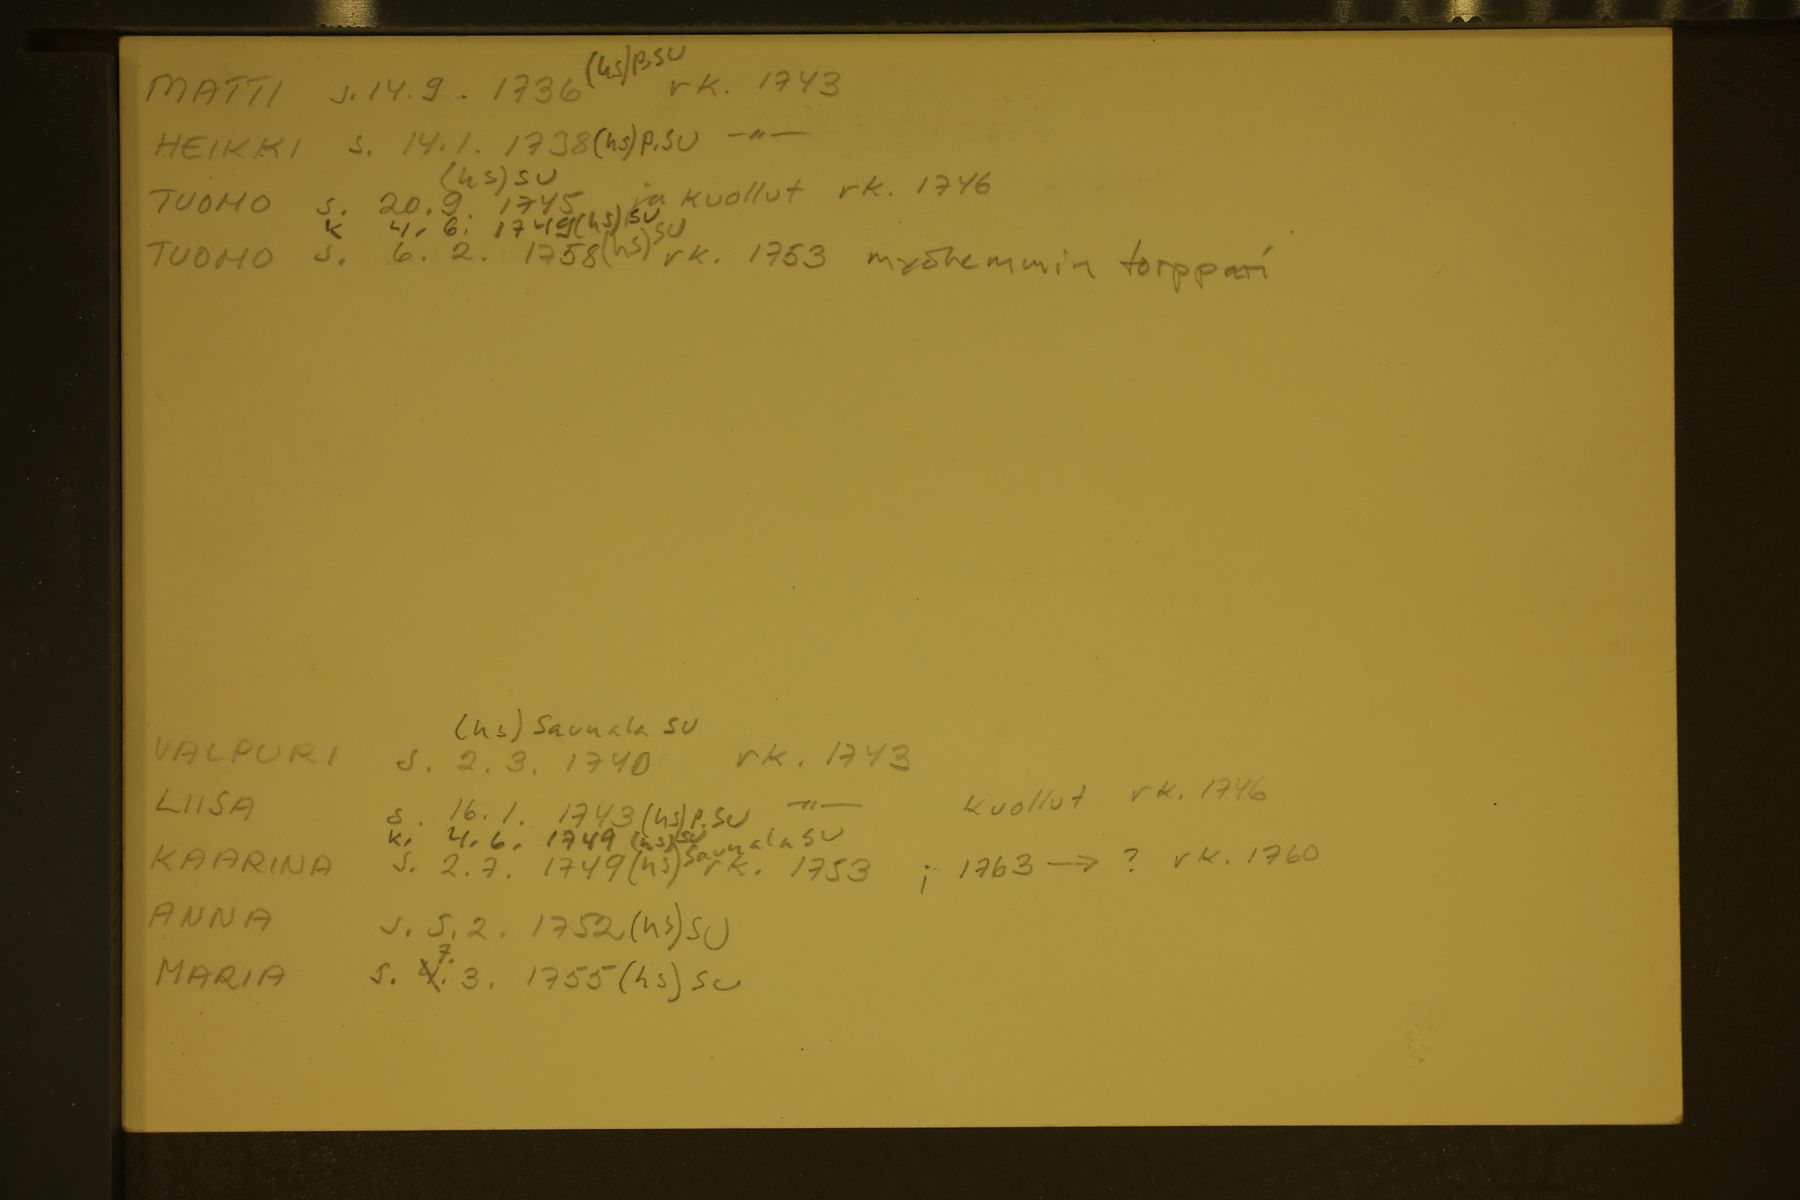 MATTI s. 14. 9. 1736 (hs) p. su rk. 1743
HEIKKI s. 14. 1. 1738 (hs) p. su —"—
(hs) su
TUOMO s. 20. 9. 1745 ja kuollut rk. 1746
k 4. 6. 1749 (hs) su
TUOMO s. 6. 2. 1758 (hs) su rk. 1753 myöhemmin torppari
(hs) Saunala su
VALPURI s. 2. 3. 1740 rk. 1743
LIISA s. 16. 1. 1743 (hs) p. su —"— kuollut rk. 1746
k. 4. 6. 1749 (hs) su
KAARINA s. 2. 7. 1749 (hs) Saunala su rk. 1753 ; 1763 → ? rk. 1760
ANNA s. 5. 2. 1752 (hs) su
MARIA s. 7. 3. 1755 (hs) su